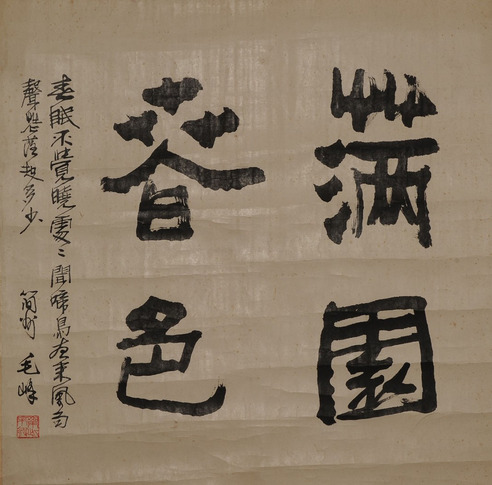 滿園
春色
春眠不覺曉處〻聞啼鳥夜來風雨
聲花落知多少
簡州 毛峰